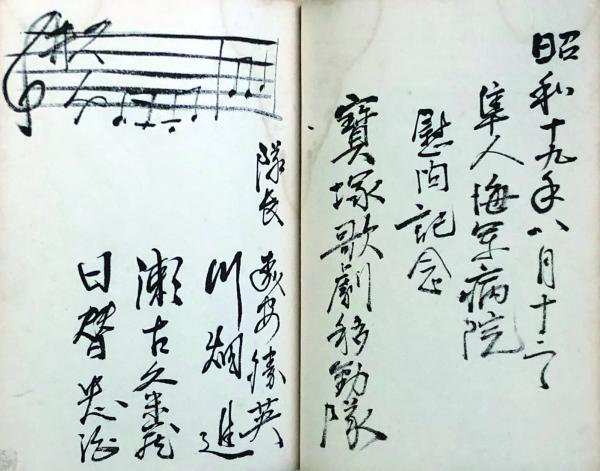 昭和十九年八月十二日
隼人海軍病院
慰問記念
寶塚歌劇移動隊
隊長
安勝英
川畑進
瀬古久米蔵
日替忠治